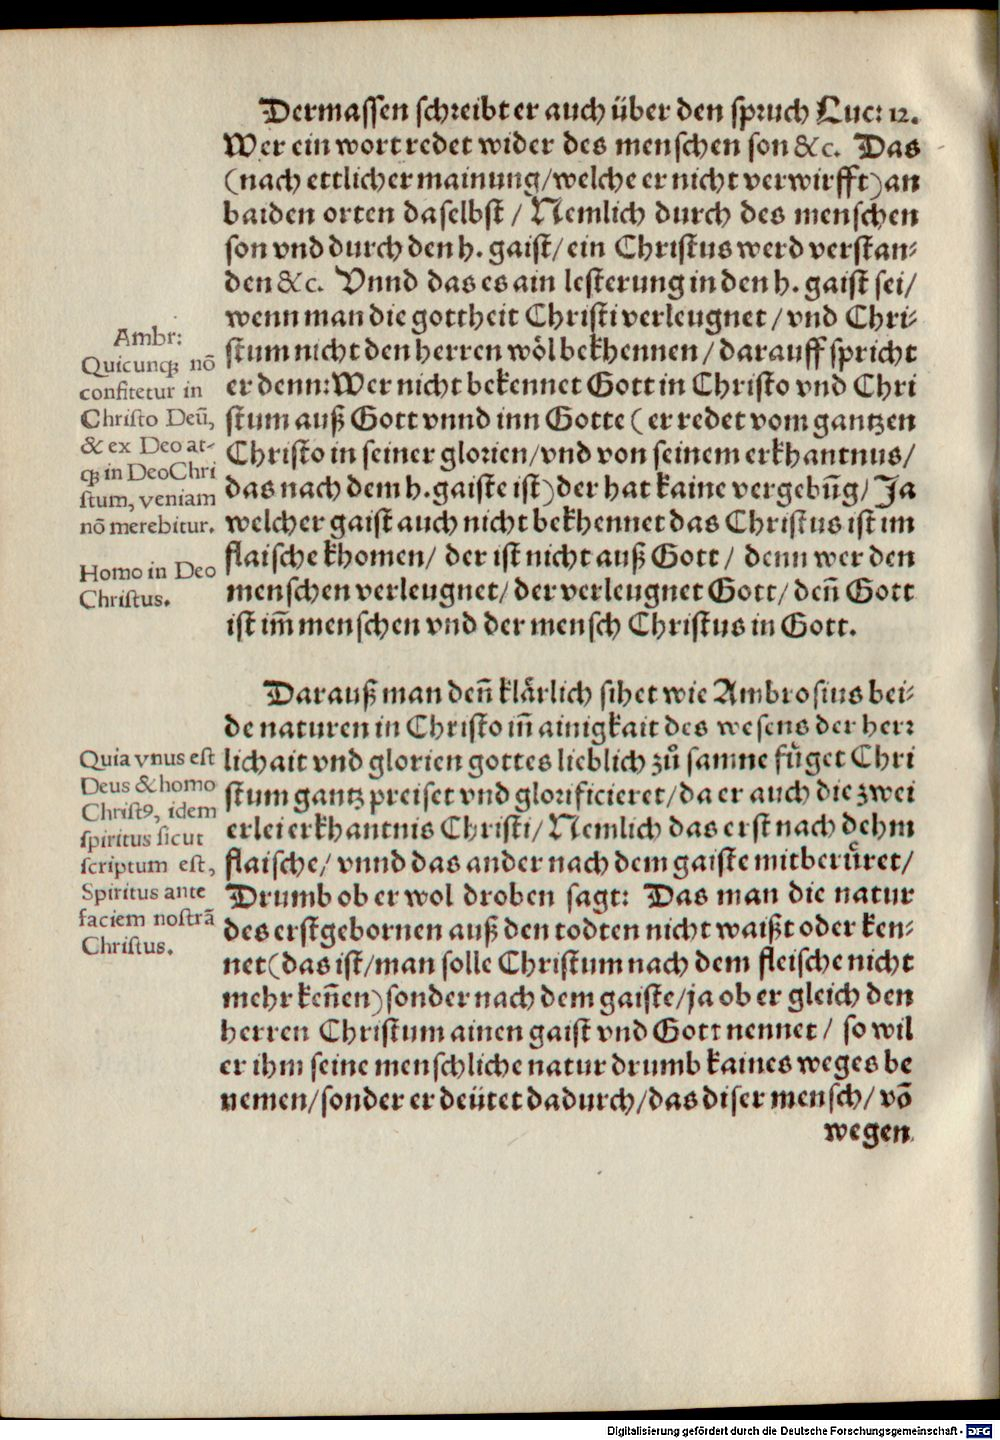 Dermassen schreibt er auch über den spruch Luc: 12.
Wer ein wort redet wider des menschen son &c. Das
(nach ettlicher mainung/welche er nicht verwirfft) an
baiden orten daselbst / Nemlich durch des menschen
son vnd durch den h. gaist/ ein Christus werd verstan-
den &c. Vnnd das es ain lesterung in den h. gaist sei/
wenn man die gottheit Christi verleugnet / vnd Chri-
stum nicht den herren wöl bekhennen / darauff spricht
er denn: Wer nicht bekennet Gott in Christo vnd Chri
stum auß Gott vnnd inn Gotte ( er redet vom gantzen
Christo in seiner glorien/vnd von seinem erkhantnus/
das nach dem h. gaiste ist) der hat kaine vergebūg/ Ja
welcher gaist auch nicht bekhennet das Christus ist im
flaische khomen/ der ist nicht auß Gott / denn wer den
menschen verleugnet/ der verleugnet Gott/ deñ Gott
ist im̄ menschen vnd der mensch Christus in Gott.
Ambr:
Quicunq; nō
confitetur in
Christo Deū,
& ex Deo at-
q; in Deo Chri
stum, veniam
nō merebitur.
Homo in Deo
Christus.
Darauß man deñ klärlich sihet wie Ambrosius bei-
de naturen in Christo iñ ainigkait des wesens der herr
lichait vnd glorien gottes lieblich zů samne fůget Chri
stum gantz preiset vnd glorificieret/da er auch die zwei
erlei erkhantnis Christi/ Nemlich das erst nach dehm
flaische/ vnnd das ander nach dem gaiste mitberůret/
Drumb ob er wol droben sagt: Das man die natur
des erstgebornen auß den todten nicht waißt oder ken-
net (das ist/man solle Christum nach dem fleische nicht
mehr keñen) sonder nach dem gaiste/ja ob er gleich den
herren Christum ainen gaist vnd Gott nennet / so wil
er ihm seine menschliche natur drumb kaines weges be
nemen/sonder er deütet dadurch/das diser mensch/ vō
wegen
Quia vnus est
Deus & homo
Christꝰ, idem
spiritus sicut
scriptum est,
Spiritus ante
faciem nostrā
Christus.
Digitalisierung gefördert durch die Deutsche Forschungsgemeinschaft - DFG